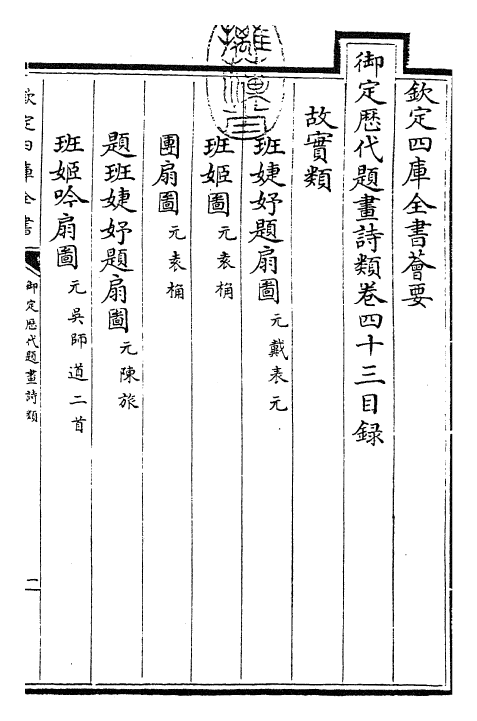 欽定四庫全書薈要
御定歷代題畫詩類卷四十三目録
故實類
班婕妤題扇圖 元戴表元
班姬圖 元袁桷
團扇圖 元袁桷
題班婕妤題扇圖 元陳旅
班姬吟扇圖 元吳師道二首
欽定四庫全書
御定歷代題畫詩類
一